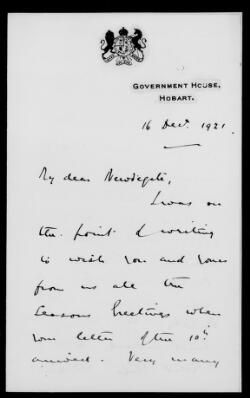 GOVERNMENT HOUSE,
HOBART.
16 Decr. 1921.
My dear Newdegate,
I was on
the point of writing
to wish you and yours
from us all the
seasons greetings when
your letter of the 10th
arrived. Very many